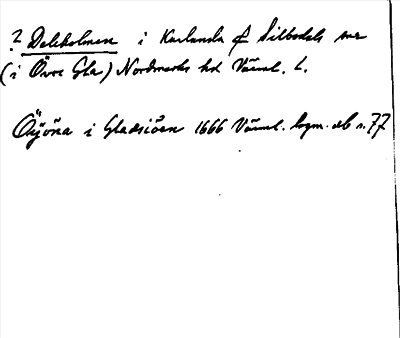 ? Daleholmen i Karlanda o/ Silbodals snr
(i Övre Gla) Nordmarks hd Värml. L.
Öijöna i Gladsiöen 1666 Värml. lagm. db n. 77